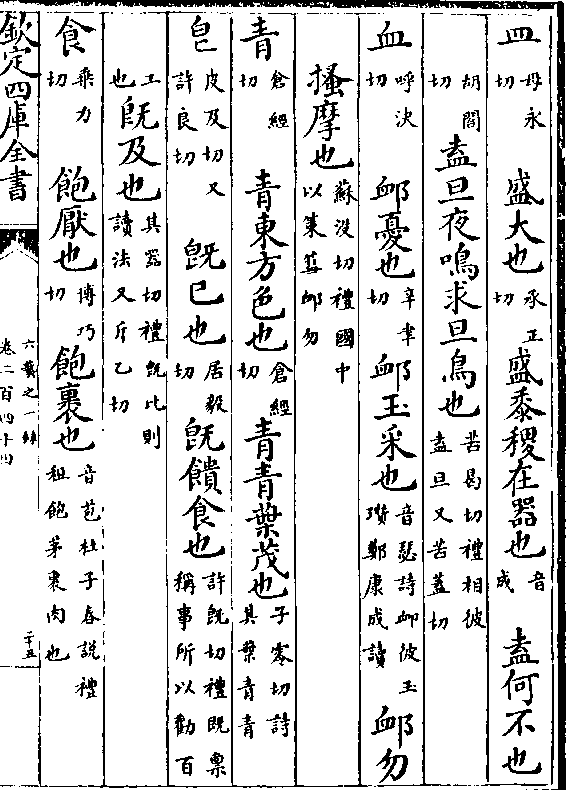 皿母永切　盛大也承正切盛黍稷在器也音成　盍何不也
胡閤切盍旦夜鳴求旦鳥也苦曷切禮相彼盍旦又苦蓋切
血呼决切　卹憂也辛聿切卹玉采也音瑟詩卹彼玉瓚鄭康成讀卹勿
搔摩也蘇沒切禮國中以策彗卹勿
青倉經切　青東方色也倉經切青青葉茂也子零切詩其葉青青
皀皮及切又許良切　旣已也居毅切旣饋食也許旣切禮旣稟稱事所以勸百
工也旣及也其器切禮旣比則讀法又斤乙切
食乘力切　飽厭也博巧切飽裹也音苞杜子春說禮租飽茅裹肉也
欽定四庫全書
卷二百四十四
二十五